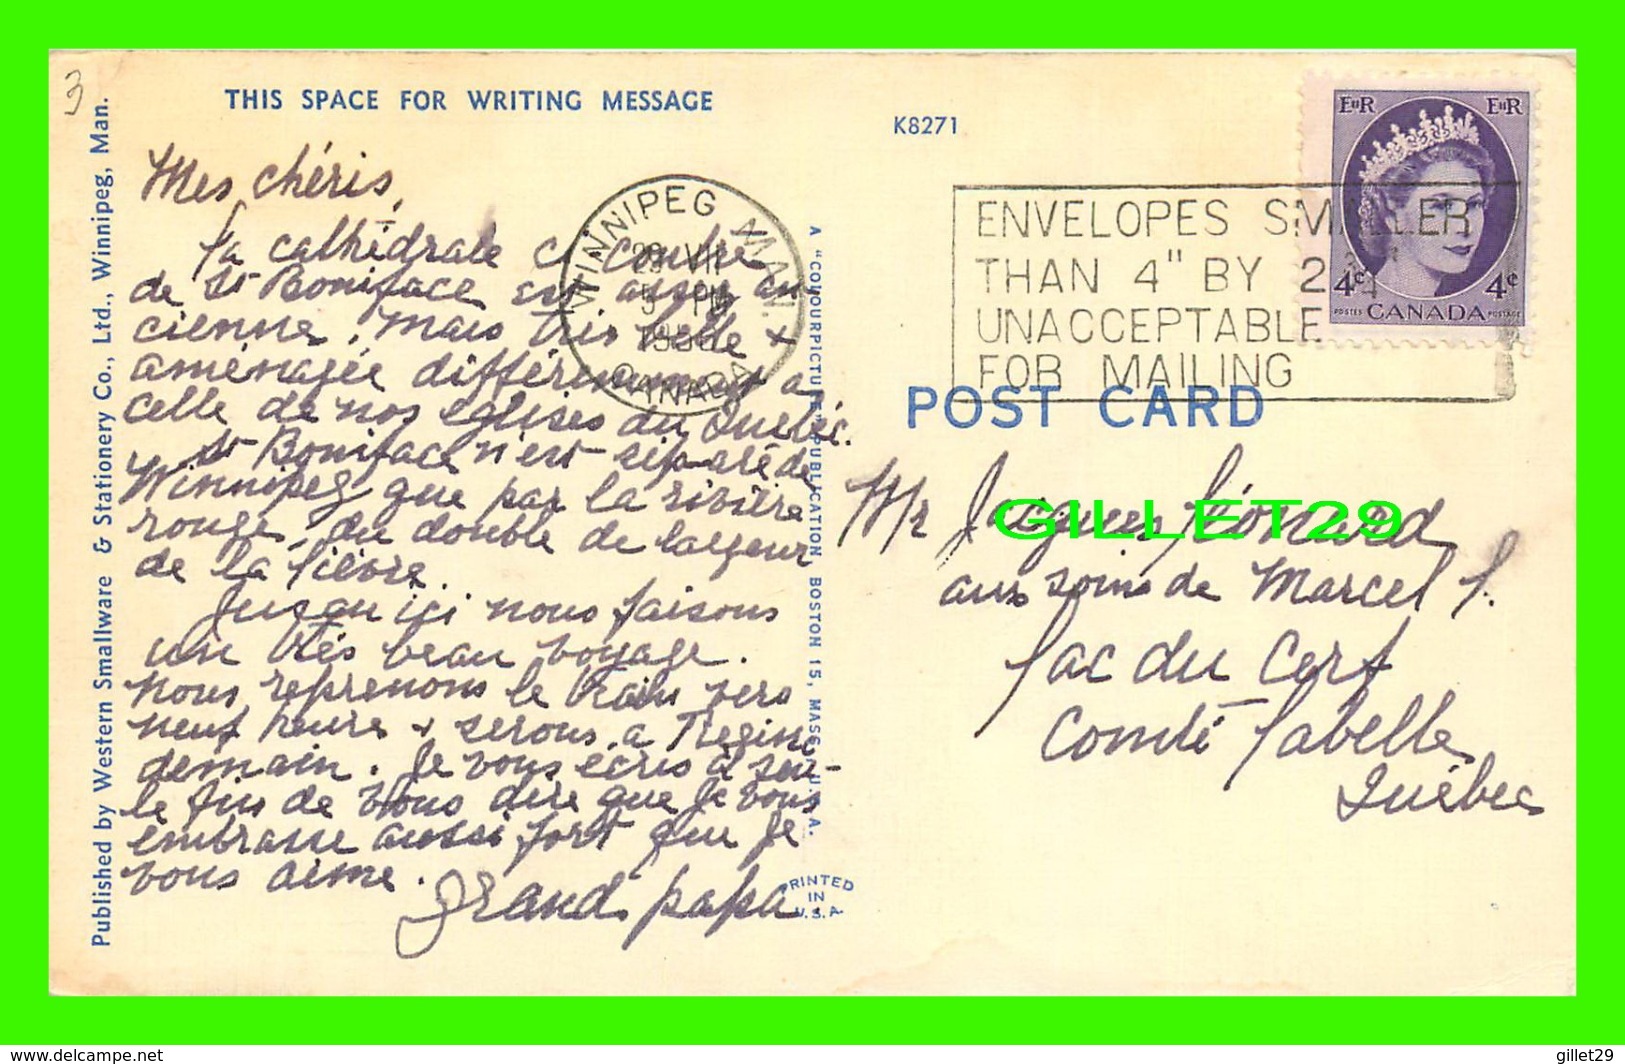 3
THIS SPACE FOR WRITING MESSAGE
K8271
Published by Western Smallware & Stationery Co., Ltd., Winnipeg, Man.
Mes chéris,
La cathédrale ci contre
de St Boniface est assez an-
cienne, mais très belle +
aménagée différemment à
celle de nos églises du Québec.
St Boniface n'est séparé de
Winnipeg que par la rivière
rouge, du double de largeur
de la Lièvre.
Jusqu'ici nous faisons
un très beau voyage.
Nous reprenons le train vers
neuf heure + serons à Regina
demain. Je vous écris à seu-
le fin de vous dire que je vous
embrasse aussi fort que je
vous aime.
Grand papa.
WINNIPEG MAN.
VII
5 PM
CANADA
A "COLOURPICTURE" PUBLICATION, BOSTON 15, MASS., U.S.A.
PRINTED
IN
U.S.A.
ENVELOPES SMALLER
THAN 4" BY 2
UNACCEPTABLE
FOR MAILING
EIIR EIIR
4¢ 4¢
POSTES CANADA POSTAGE
POST CARD
Mr Jacques Léonard
GILLET29
aux soins de Marcel L.
Lac du Cerf
Comté Labelle
Québec
https://www.delcampe.net
gillet29